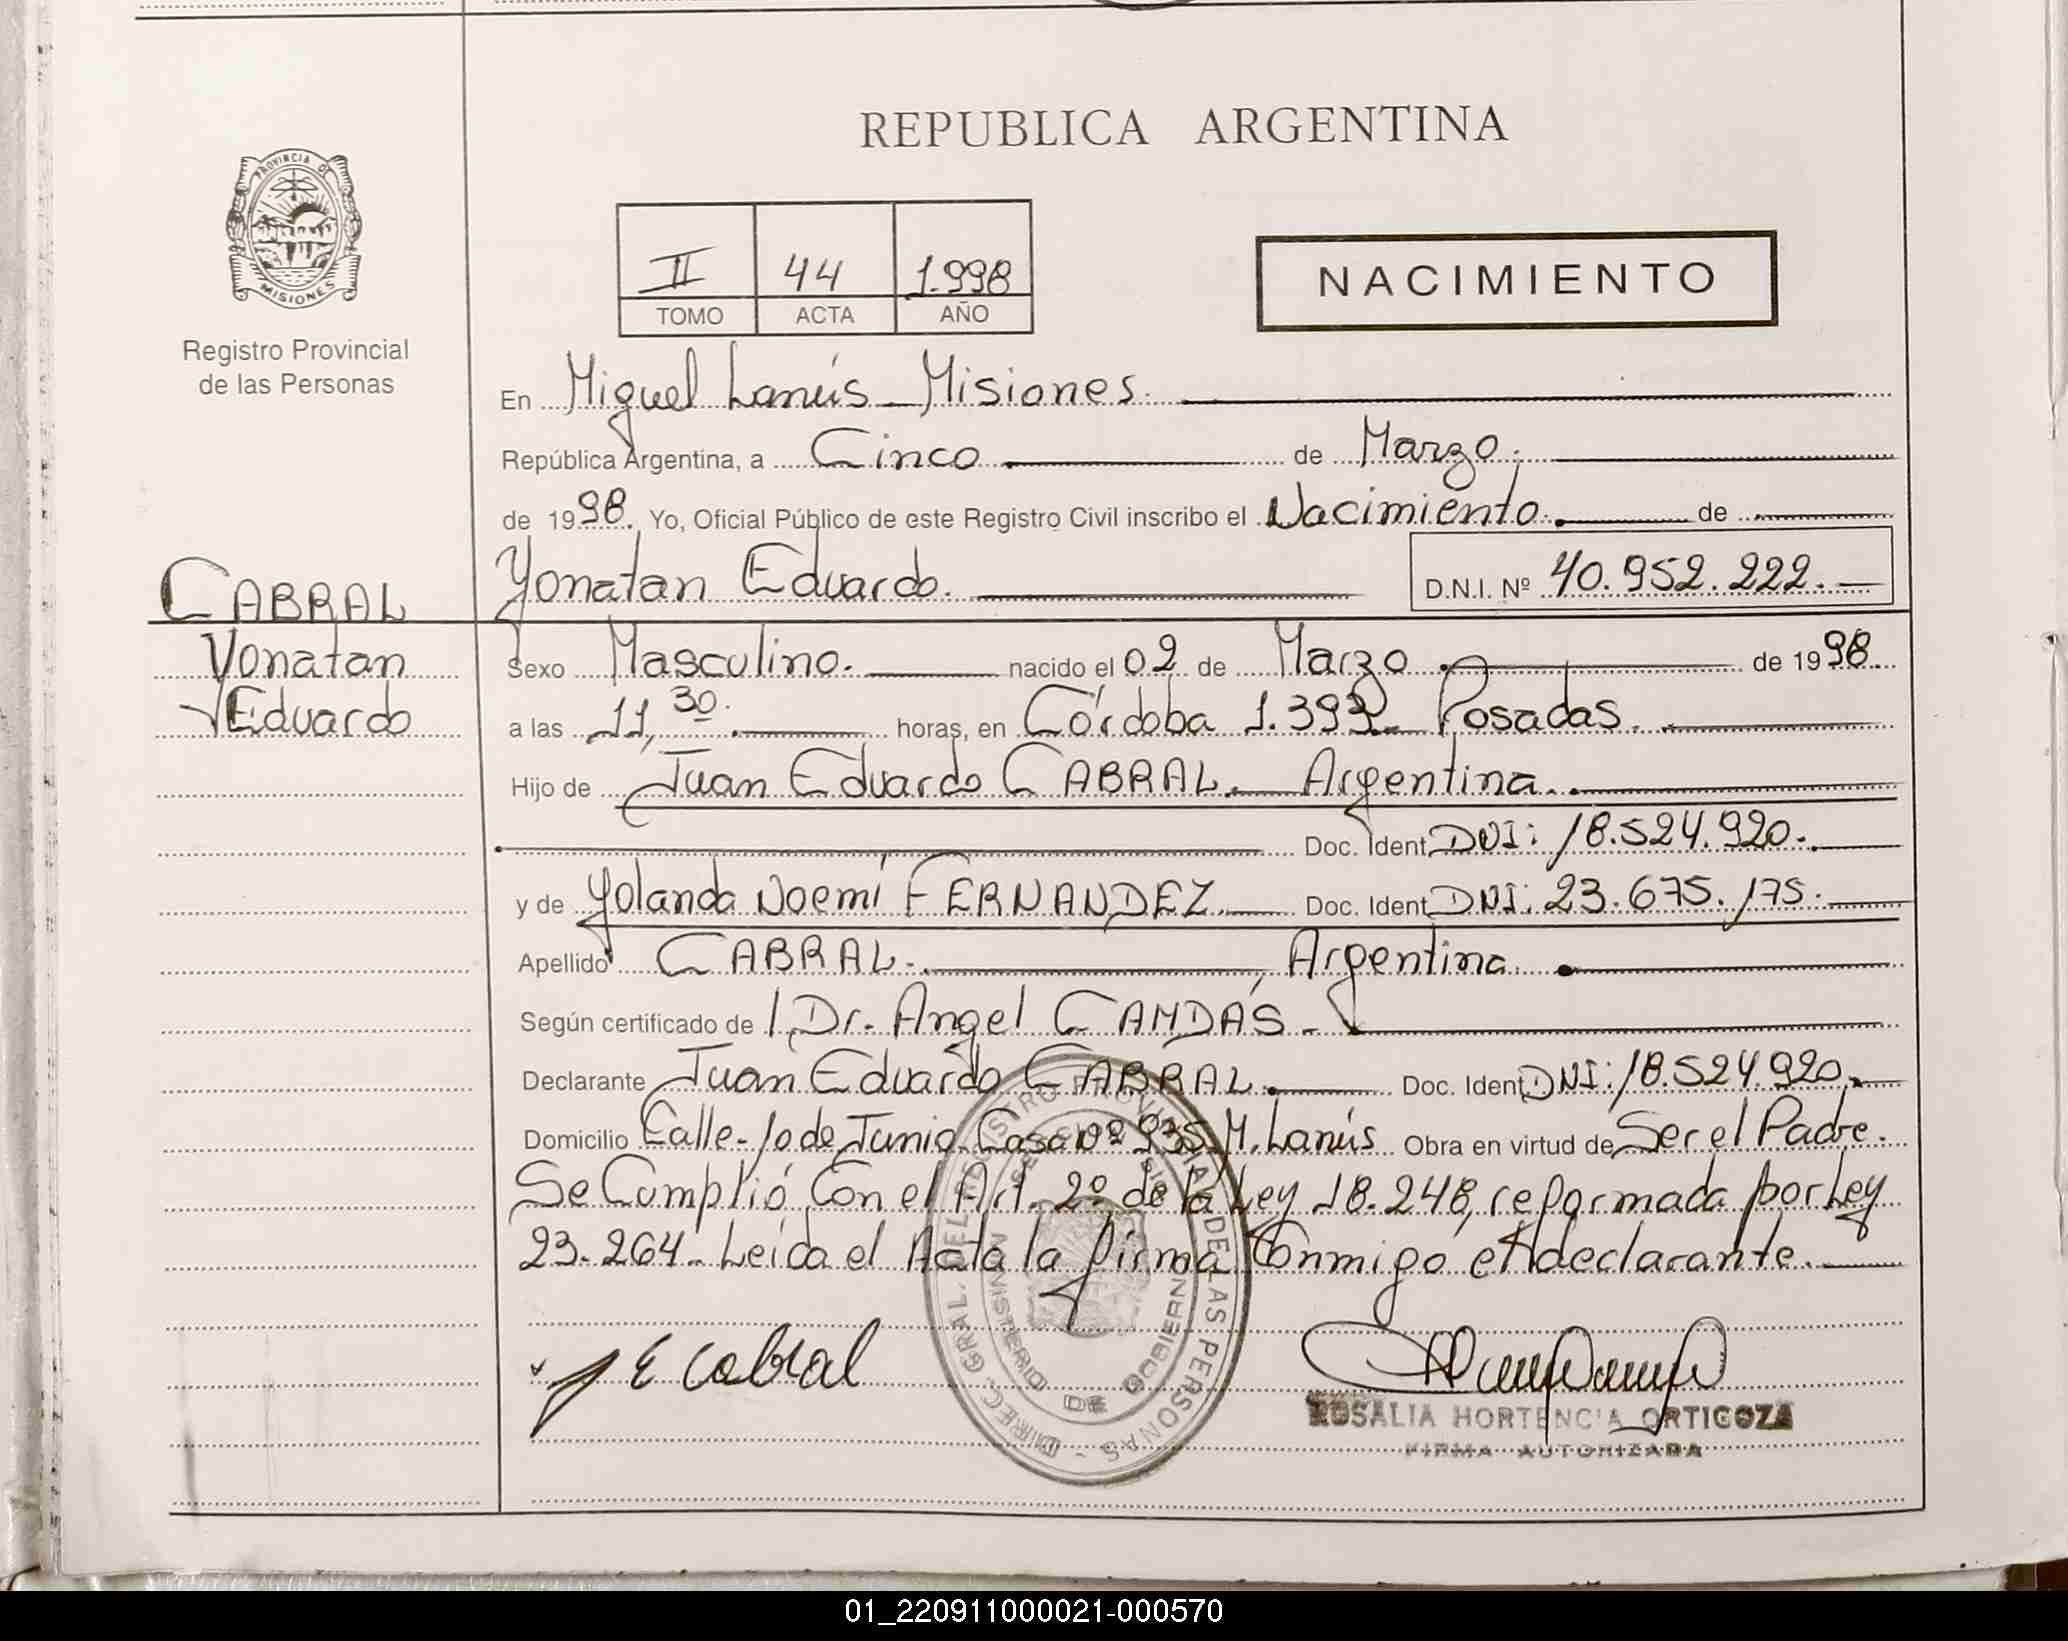 REPUBLICA ARGENTINA
PROVINCIA DE
MISIONES
Registro Provincial
de las Personas
II 44 1.998
TOMO ACTA AÑO
NACIMIENTO
En Miguel Lanús - Misiones.
República Argentina, a Cinco de Marzo.
de 1998. Yo, Oficial Público de este Registro Civil inscribo el Nacimiento. de
Yonatan Eduardo. D.N.I. Nº 40.952.222.
CABRAL
Yonatan
Eduardo
Sexo Masculino. nacido el 02 de Marzo de 1998
a las 11,30. horas, en Córdoba Posadas.
Hijo de Juan Eduardo CABRAL. Argentina.
Doc. Ident. DNI: 18.524.920.
y de Yolanda Noemí FERNANDEZ. Doc. Ident. DNI: 23.675.175.
Apellido CABRAL. Argentina.
Según certificado de Dr. Angel CAMDÁS.
Declarante Juan Eduardo CABRAL. Doc. Ident. DNI: 18.524.920.
Domicilio Calle - 10 de Junio Casa nº 935. M. Lanús Obra en virtud de Ser el Padre.
Se Cumplió Con el Art. 2º de la Ley 18.248, reformada por Ley
23.264. Leída el Acta la firma Conmigo el declarante.
J E Cabral
DIREC. GRAL. DEL REGISTRO PROVINCIAL DE LAS PERSONAS -
MINISTERIO DE GOBIERNO
ROSALIA HORTENCIA ORTIGOZA
FIRMA AUTORIZADA
01_220911000021-000570